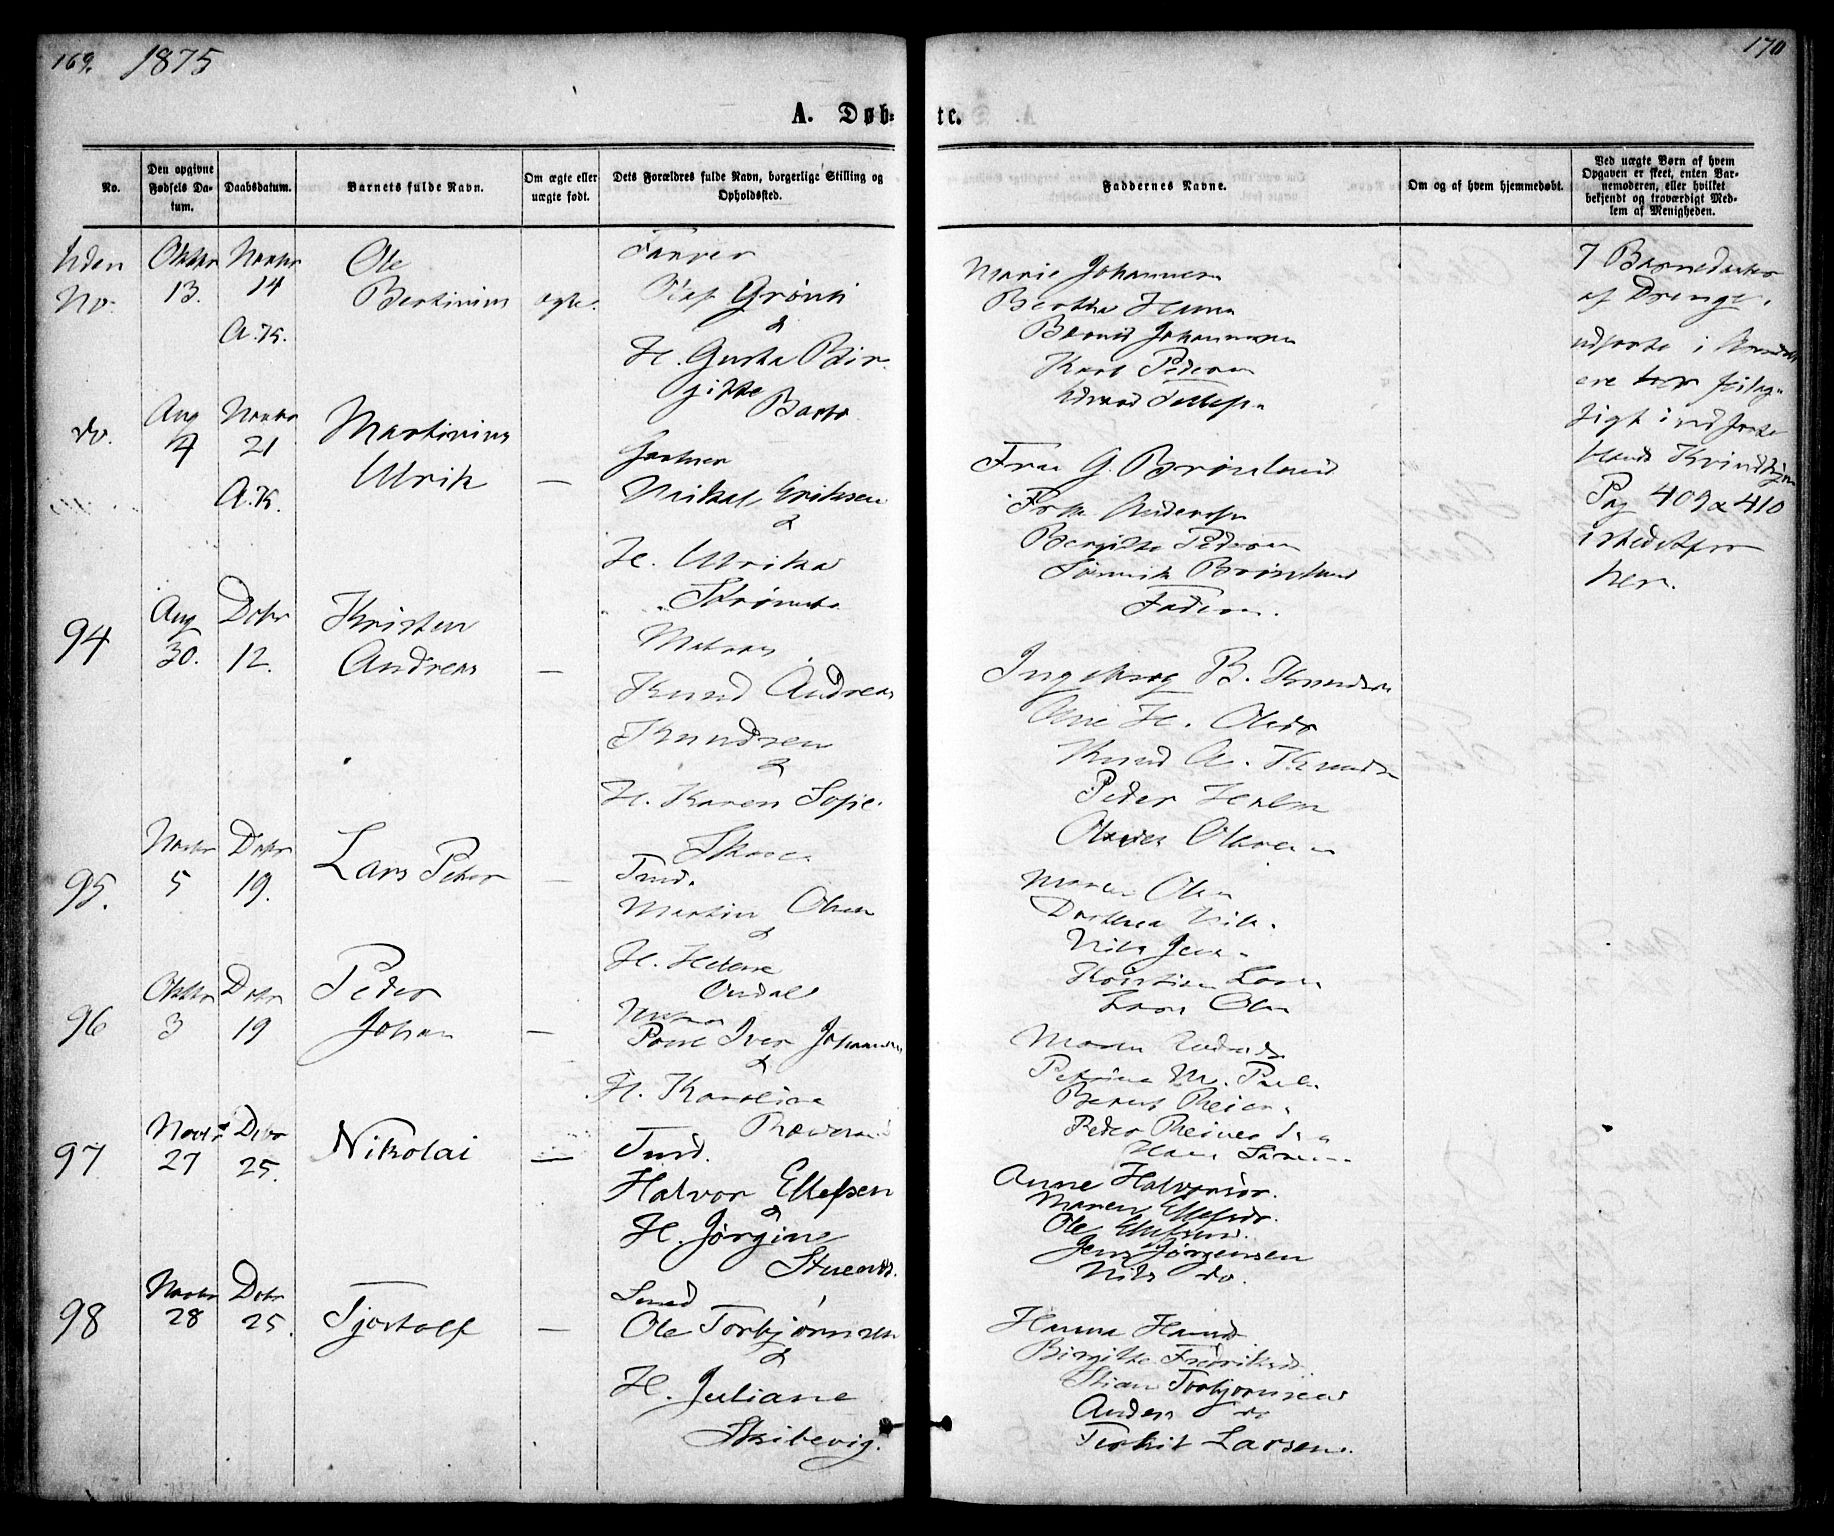 169. 1875
170
A. Døb-
te.
No.
Den opgivne Fødsels Da-
tum.
Daabsdatum.
Barnets fulde Navn.
Om ægte eller
uægte født.
Dets Forældres fulde Navn, borgerlige Stilling og
Opholdssted.
Faddernes Navne.
Om og af hvem hjemmedøbt.
Ved uægte Børn af hvem
Opgaven er skeet, enten Bar-
nemoderen, eller hvilket
bekjendt og troværdigt Med-
lem af Menigheden.
Uden
No.
Oktbr
13.
Novbr
14
A.K.
Ole
Bertinius
ægte.
Farver
Olaf Grønli
&
H. Gusta Bir-
gitte
Marie Johannesen
Bertha Hansen
Bernt Johannesen
Karl Pedersen
Edvard Tellefsen
7 Barnedaaber
af Drenge,
udførte i
ere
indførte
blandt Kvindkjøn
Pag 409 & 410
istedetfor
her.
do.
Aug
4
Novbr
21
A.K.
Martinius
Ulrik
—
Gartner
Mikal Eriksen
&
H. Ulrika
Fru G. Brønlund
Frk Andersen
Bergitte Pedersen
Brønlund
Faderen.
94
Aug
30.
Debr
12.
Kristen
Andreas
—
Matros
Knud Andreas
Knudsen
&
H. Karen Sofie
Ingeborg B. Knudsen
H. Olsdr
Knud A. Knudsen
Peder Holm
Olsen
95.
Novbr
5
Debr
19.
Lars Peter
—
Tmd.
Martin Olsen
&
H. Helene
Omdal
Maren Olsen
Dorthea Nils.
Nils Jensen
Kristian Larsen
Lars Olsen
96
Oktbr
3
Debr
19
Peder
Johan
—
Matros
Poul Iver Johannesen
&
H. Karoline
Maren
Petrine M. Pouls.
Bernt
Peder Reiersen
Hans
97
Novbr
27
Debr
25.
Nikolai
—
Tmd.
Halvor Ellefsen
&
H. Jørgine
Anne Halvorsdr.
Maren Ellefsdr.
Ole Ellefsen.
Jens Jørgensen
Nils do.
98
Novbr
28
Debr
25.
Tjostolf
—
Smed
Ole Torbjørnsen
&
H. Juliane
Skibevig.
Hanna Hansd.
Birgitte Fredriksd.
Stian Torbjørnsen
Anders do
Terkil Larsen.